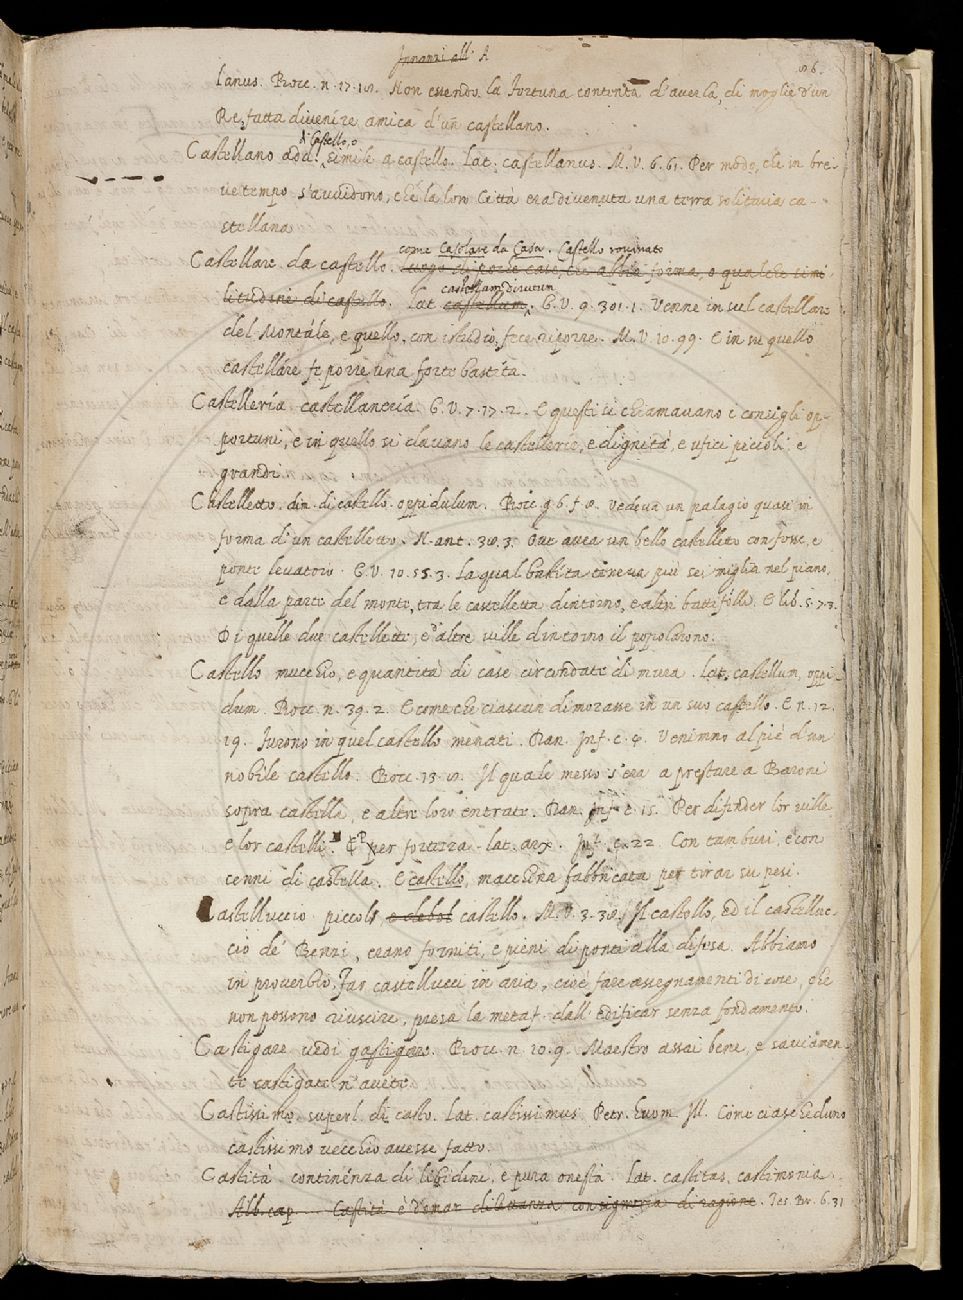 Innanzi all' A
lanus. Bocc. n. 17. 18. Non essendo la fortuna contenta d'averla, di moglie d'un
Re, fatta divenire amica d'un castellano.
di Castello, o
Castellano add. simile a castello. Lat. castellanus. M. V. 6. 61. Per modo, che in bre-
ve tempo s'avvidono, che la loro Città era divenuta una terra solitaria ca-
stellana
come Casolare da Casa. Castello rovinato
Castellare da castello. luogo di poche case, che abbia forma, o qualche simi
castellum dirutum
litudine di castello. Lat. castellum. G. V. 9. 301. 1. Venne in sul castellare
del Montale, e quello, con istudio, fece riporre. M. V. 10. 99. E in su quello
castellare fe porre una forte bastita.
Castelleria castellaneria. G. V. 7. 17. 2. E questi si chiamavano i consigli op-
portuni, e in quello si davano le castellerie, e dignità, e ufici piccoli, e
grandi.
Castelletto. dim. di castello. oppidulum. Bocc. g. 6. f. 8. vedeva un palagio quasi in
forma di un castelletto. N. ant. 38. 3. Ove avea un bello castelletto con fosse, e
ponte levatoio. G. V. 10. 55. 3. La qual bastita teneva più sei miglia nel piano,
e dalla parte del monte, tra le castelletta dintorno, e altri battifolli. E lib. 5. 7. 3.
Di quelle due castellette, e d'altre ville dintorno il popolarono.
Castello mucchio, e quantità di case circondate di mura. Lat. castellum, oppi-
dum. Bocc. n. 39. 2. E come che ciascun dimorasse in un suo castello. E n. 12.
19. furono in quel castello menati. Dan. Inf. c. 4. Venimmo al piè d'un
nobile castello. Bocc. 13. 8. Il quale messo s'era a prestare a Baroni
sopra castella, e altre loro entrate. Dan. Inf. c. 15. Per difender lor ville
e lor castelli. E per fortezza. lat. arx. Inf. c. 22. Con tamburi, e con
cenni di castella. E castello, macchina fabbricata per tirar su pesi.
Castelluccio piccolo, e debol castello. M. V. 3. 38. Il castello, ed il castelluc-
cio de' Benni, erano forniti, e pieni di ponti alla difesa. Abbiamo
in proverbio, Far castellucci in aria, cioè fare assegnamenti di cose, che
non possono riuscire, presa la metaf. dall' edificar senza fondamento.
Castigare vedi gastigare. Bocc. n. 20. 9. Maestro assai bene, e saviamen-
te castigate n'avete.
Castissimo superl. di casto. Lat. castissimus. Petr. huom. Ill. Come ciascheduno
castissimo vecchio avesse fatto.
Castità continenza di libidine, e pura onestà. Lat. castitas, castimonia
Alb. cap. Castità è domar con signoria di ragione. Tes. Br. 6. 31